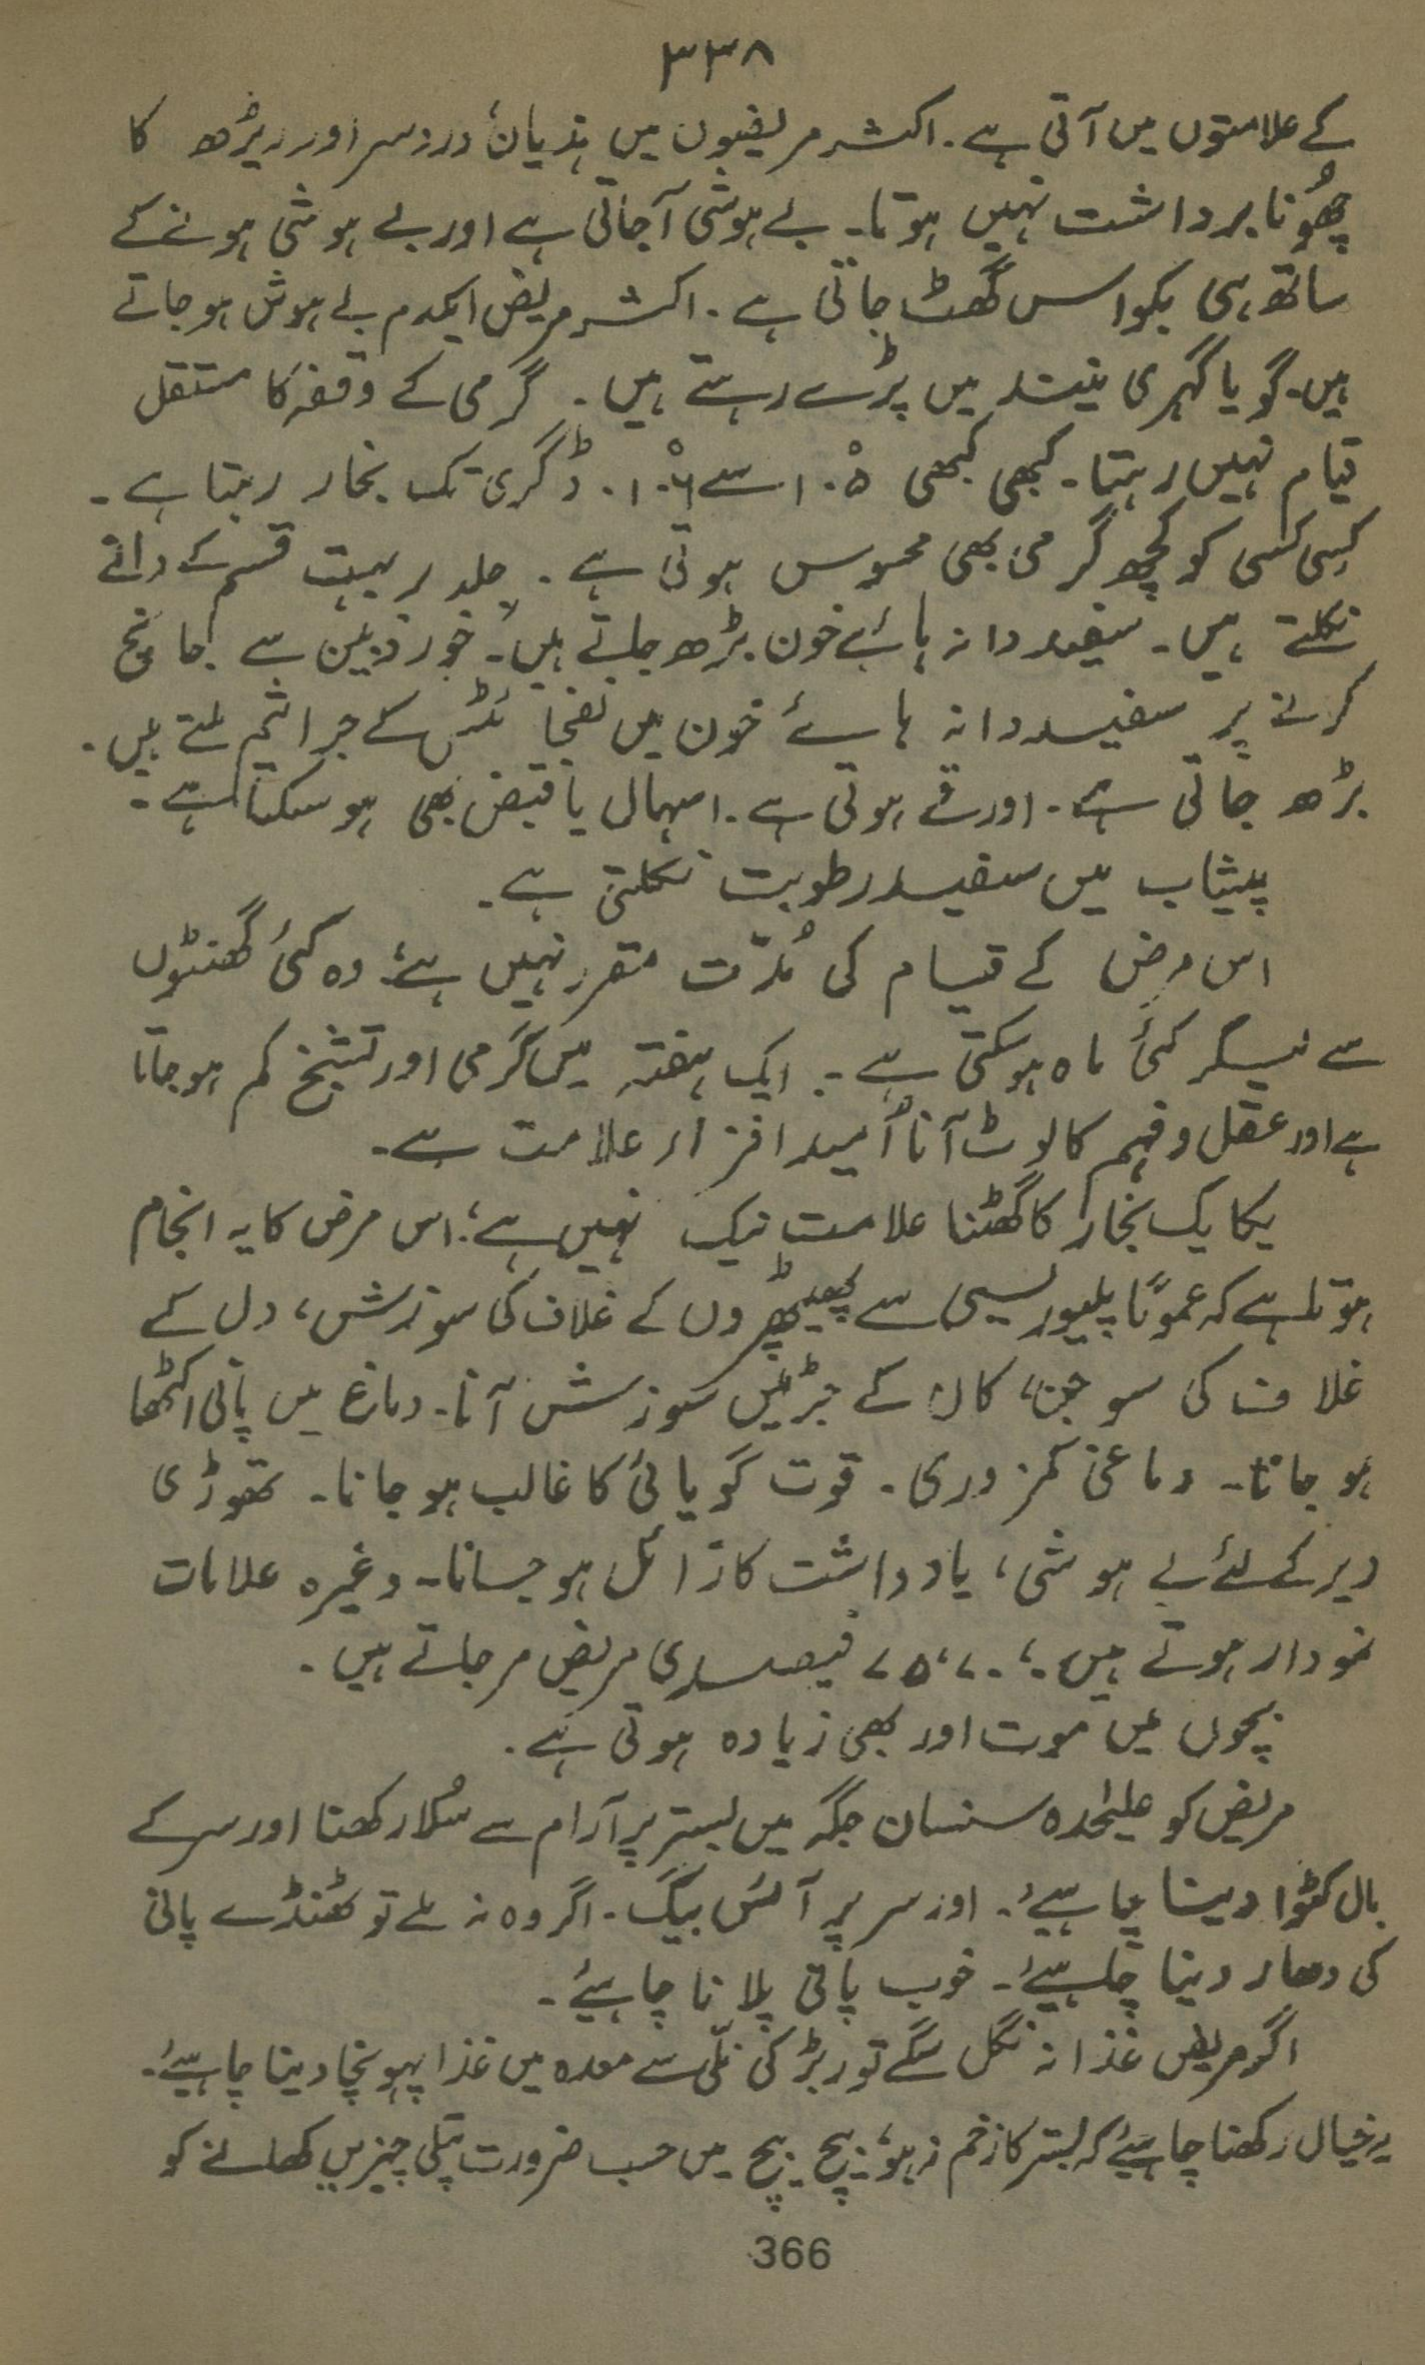 ۳۳۸
کے علامتوں میں آتی ہے۔ اکثر مریضوں میں ہذیان، درد سر اور ریڑھ کا
چھُونا برداشت نہیں ہوتا۔ بے ہوشی آجاتی ہے اور بے ہوشی ہونے کے
ساتھ ہی بکواس گھٹ جاتی ہے۔ اکثر مریض ایکدم بے ہوش ہوجاتے
ہیں۔ گویا گہری نیند میں پڑے رہتے ہیں۔ گرمی کے وقفہ کا مستقل
قیام نہیں رہتا۔ کبھی کبھی ۱۰۵ْ سے ۱۰۶ْ ڈگری تک بخار رہتا ہے۔
کِسی کسی کو کچھ گرمی بھی محسوس ہوتی ہے۔ جلد پر بہت قسم کے دانے
نکلتے ہیں۔ سفید دانہ ہائے خون بڑھ جاتے ہیں۔ خوردبین سے جانچ
کرنے پر سفید دانہ ہائے خون میں کے جراثیم ملتے ہیں۔
بڑھ جاتی ہے۔ اور قے ہوتی ہے۔ اسہال یا قبض بھی ہوسکتا ہے۔
پیشاب میں سفید رطوبت نکلتی ہے۔
اس مرض کے قیام کی مُدّت مقرر نہیں ہے؛ وہ کئی گھنٹوں
سے لیکر کئی ماہ ہوسکتی ہے۔ ایک ہفتہ میں گرمی اور تشنج کم ہوجاتا
ہے اور عقل و فہم کا لوٹ آنا اُمید افزاء علامت ہے۔
یکایک بخار کا گھٹنا علامت نیک نہیں ہے؛ اس مرض کا یہ انجام
ہوتا ہے کہ عموًما پلیوریسی سے پھیپھڑوں کے غلاف کی سوزش، دل کے
غلاف کی سوجن، کان کے جڑ میں سوزش آنا۔ دماغ میں پانی اکٹھا
ہوجانا۔ دماغی کمزوری۔ قوت گویائی کا غالب ہوجانا۔ تھوڑی
دیر کے لئے بے ہوشی، یادداشت کا زائل ہوجانا۔ وغیرہ علامات
نمودار ہوتے ہیں۔ ۷۰، ۷۵ فیصدی مریض مرجاتے ہیں۔
بچوں میں موت اور بھی زیادہ ہوتی ہے۔
مریض کو علیٰحدہ سنسان جگہ میں بستر پر آرام سے سُلا رکھنا اور سر کے
بال کٹوا دینا چاہیئے۔ اور سر پر آئس بیگ۔ اگر وہ نہ ملے تو ٹھنڈے پانی
کی دھار دینا چاہیئے۔ خوب پانی پلانا چاہیئے۔
اگر مریض غذا نہ نگل سکے تو ربڑ کی نلّی سے معدہ میں غذا پہونچا دینا چاہیئے۔
یہ خیال رکھنا چاہیئے کہ بستر کا زخم نہ ہو؛ بیچ بیچ میں حسب ضرورت پتلی چیزیں کھلانے کو
366